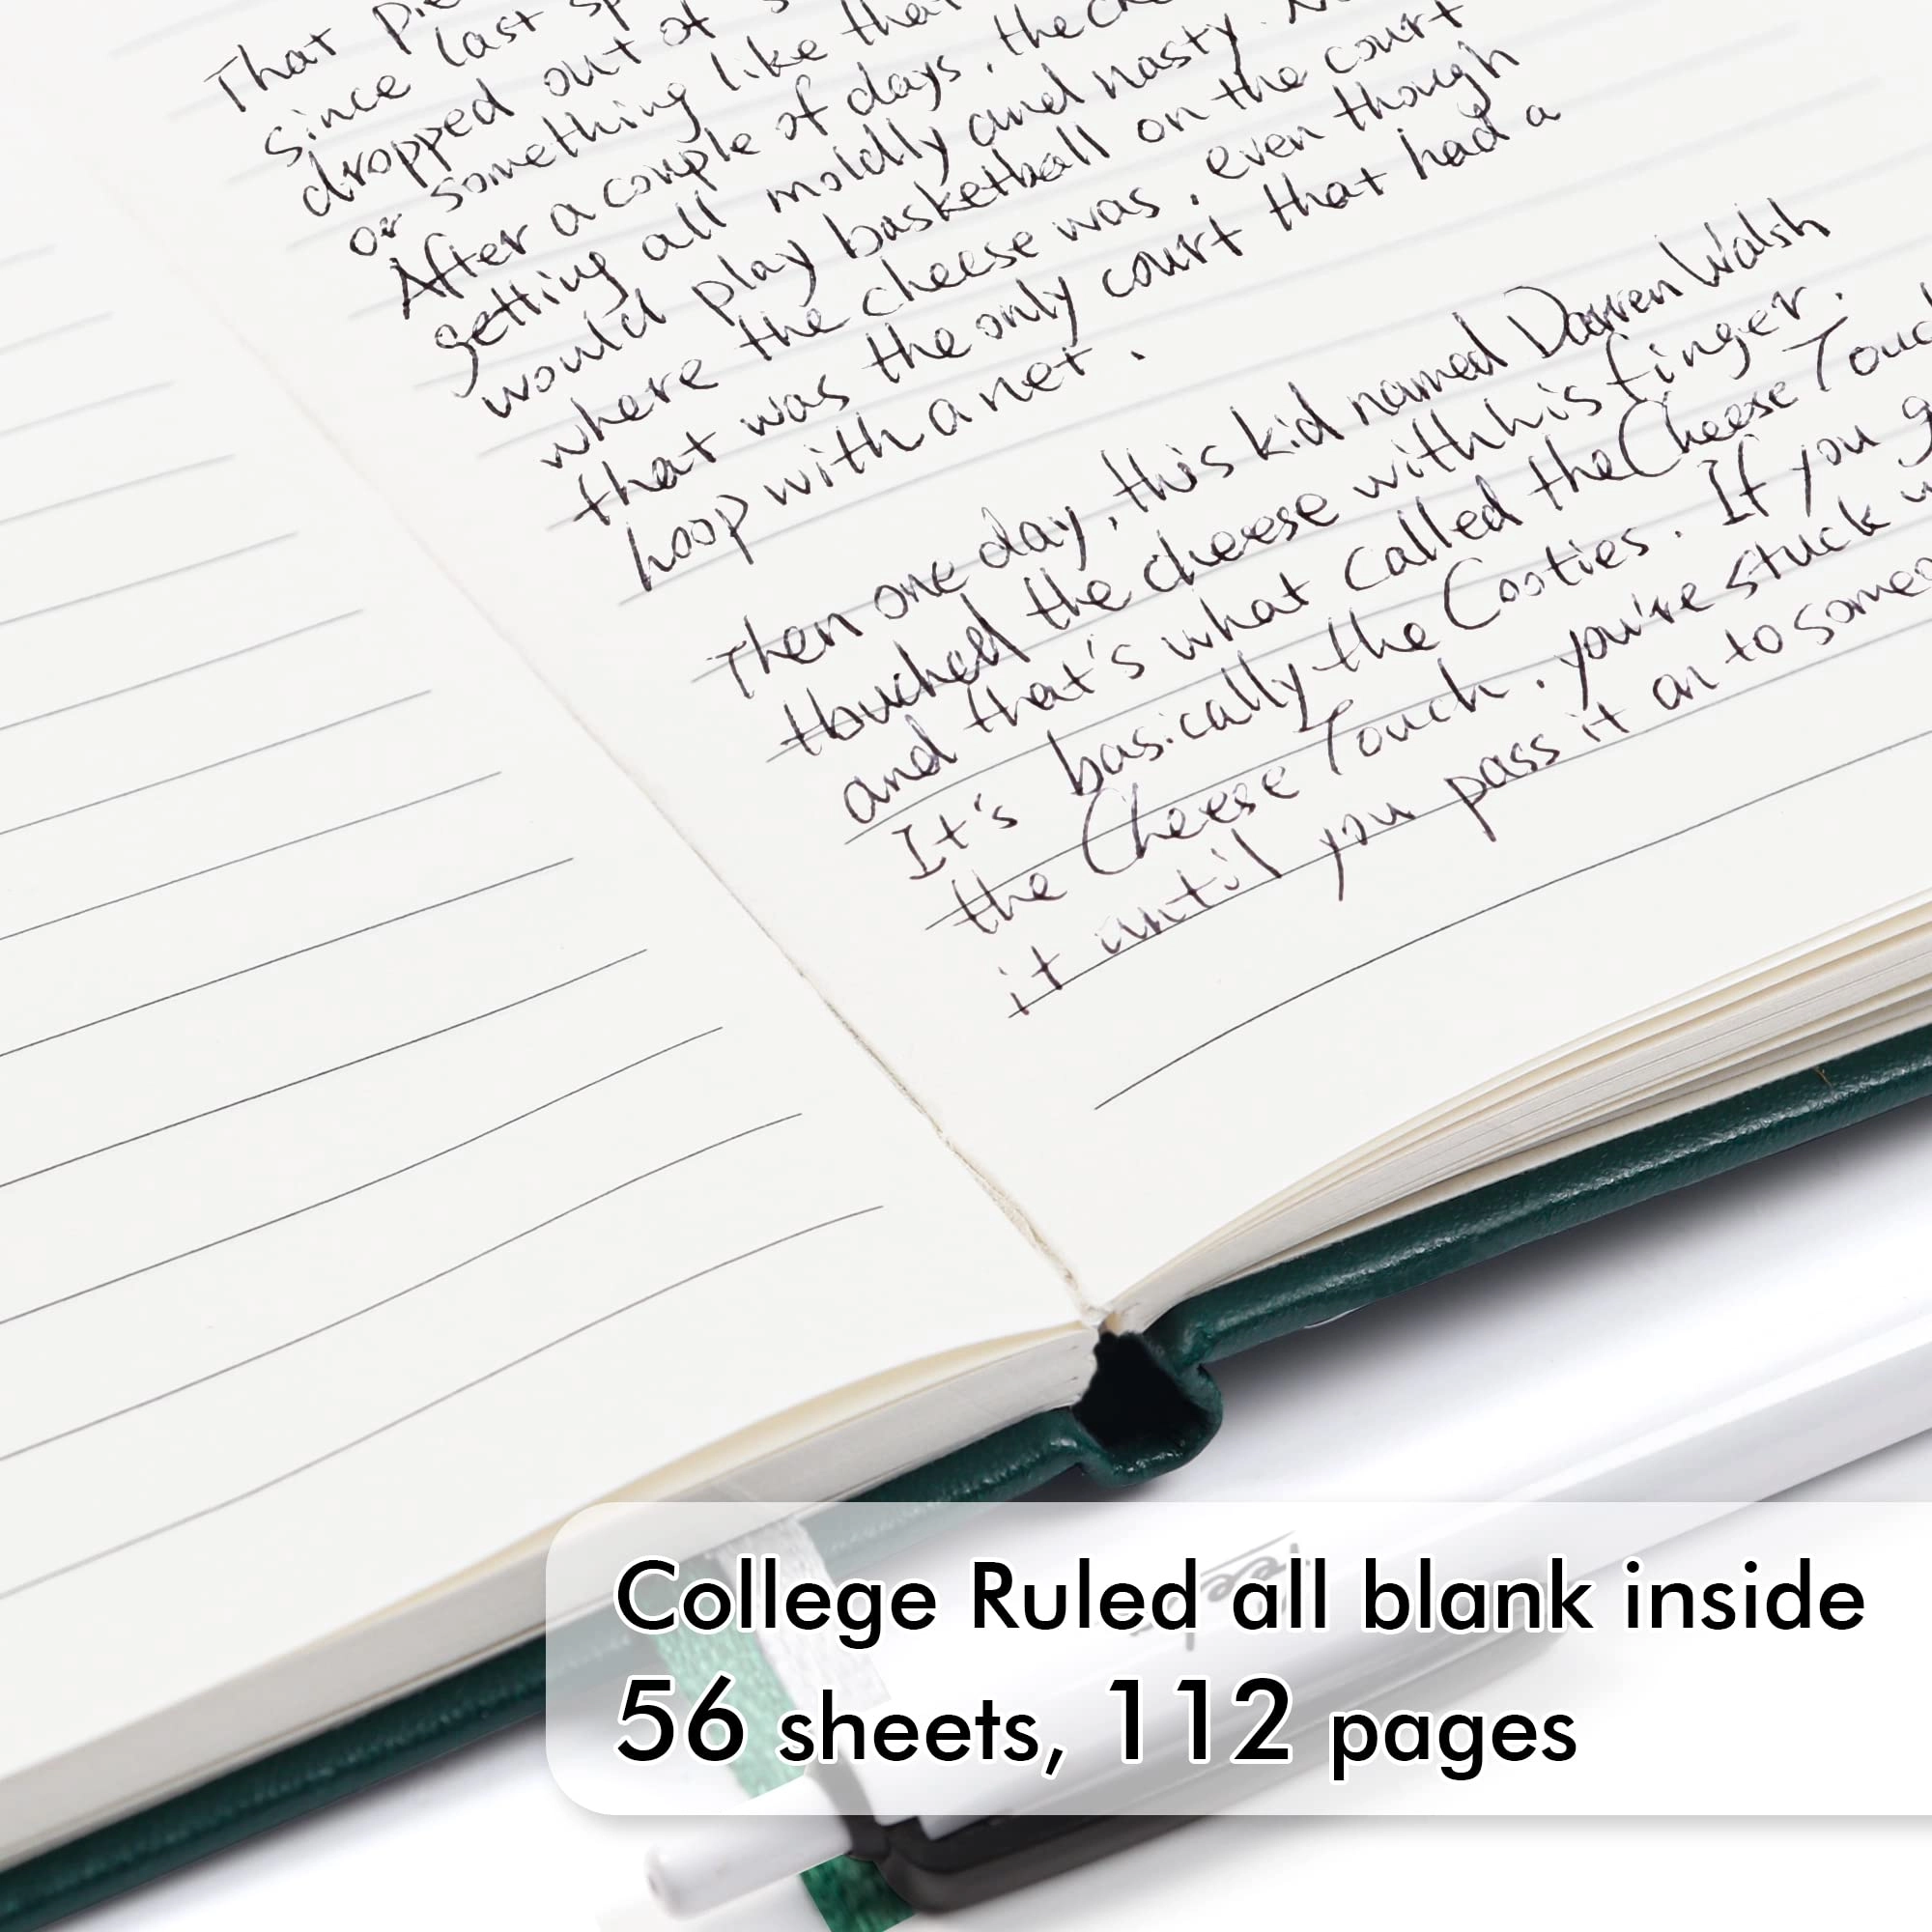 That Pie
since last sp
dropped out of s
or something like that
After a couple of days, the che
getting all moldly and nasty. N
would play basketball on the court
where the cheese was, even though
that was the only court that had a
hoop with a net.
Then one day, this kid named Darren Walsh
touched the cheese with his finger.
and that's what called the Cheese Touch
It's basically the Cooties. If you g
the Cheese Touch, you're stuck w
it until you pass it on to someo
College Ruled all blank inside
56 sheets, 112 pages